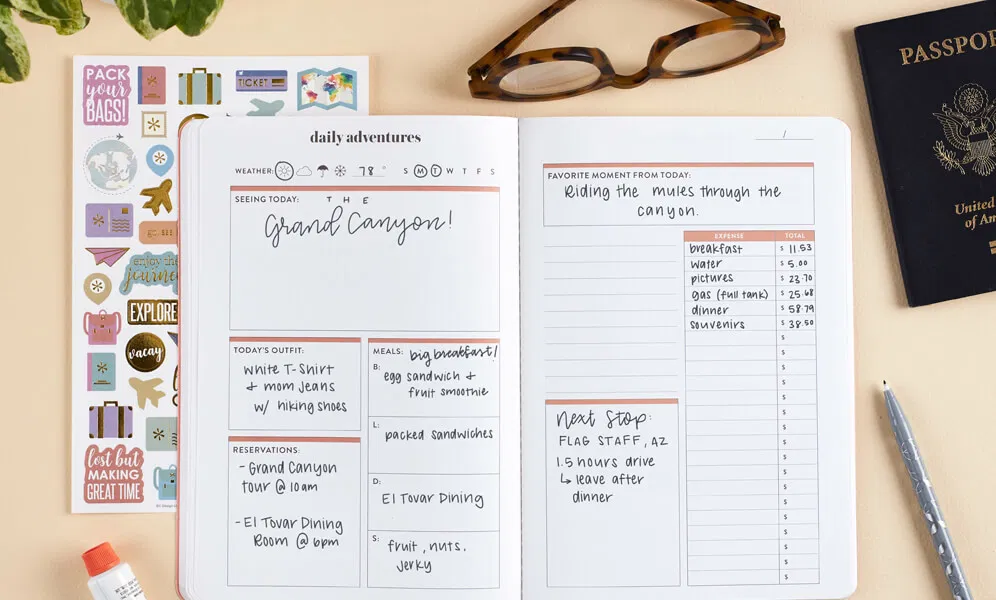 PACK
your
BAGS!
TICKET
enjoy the
journey
EXPLORE
vacay
lost but
MAKING
GREAT TIME
daily adventures
WEATHER: 78 ° S M T W T F S
SEEING TODAY: THE
Grand Canyon!
TODAY'S OUTFIT:
white T-Shirt
& mom jeans
w/ hiking shoes
RESERVATIONS:
- Grand Canyon
tour @ 10am
- El Tovar Dining
Room @ 6pm
MEALS: big breakfast!
B: egg sandwich &
fruit smoothie
L: packed sandwiches
D: El Tovar Dining
S: fruit, nuts,
jerky
/
FAVORITE MOMENT FROM TODAY:
Riding the mules through the
canyon.
EXPENSE TOTAL
breakfast $ 11.53
water $ 5.00
pictures $ 23.70
gas (full tank) $ 25.68
dinner $ 58.79
souvenirs $ 38.50
$
$
$
$
$
$
$
$
$
$
$
$
$
$
$
$
$
Next Stop:
FLAG STAFF, AZ
1.5 hours drive
↳ leave after
dinner
PASSPOR
United
of Am